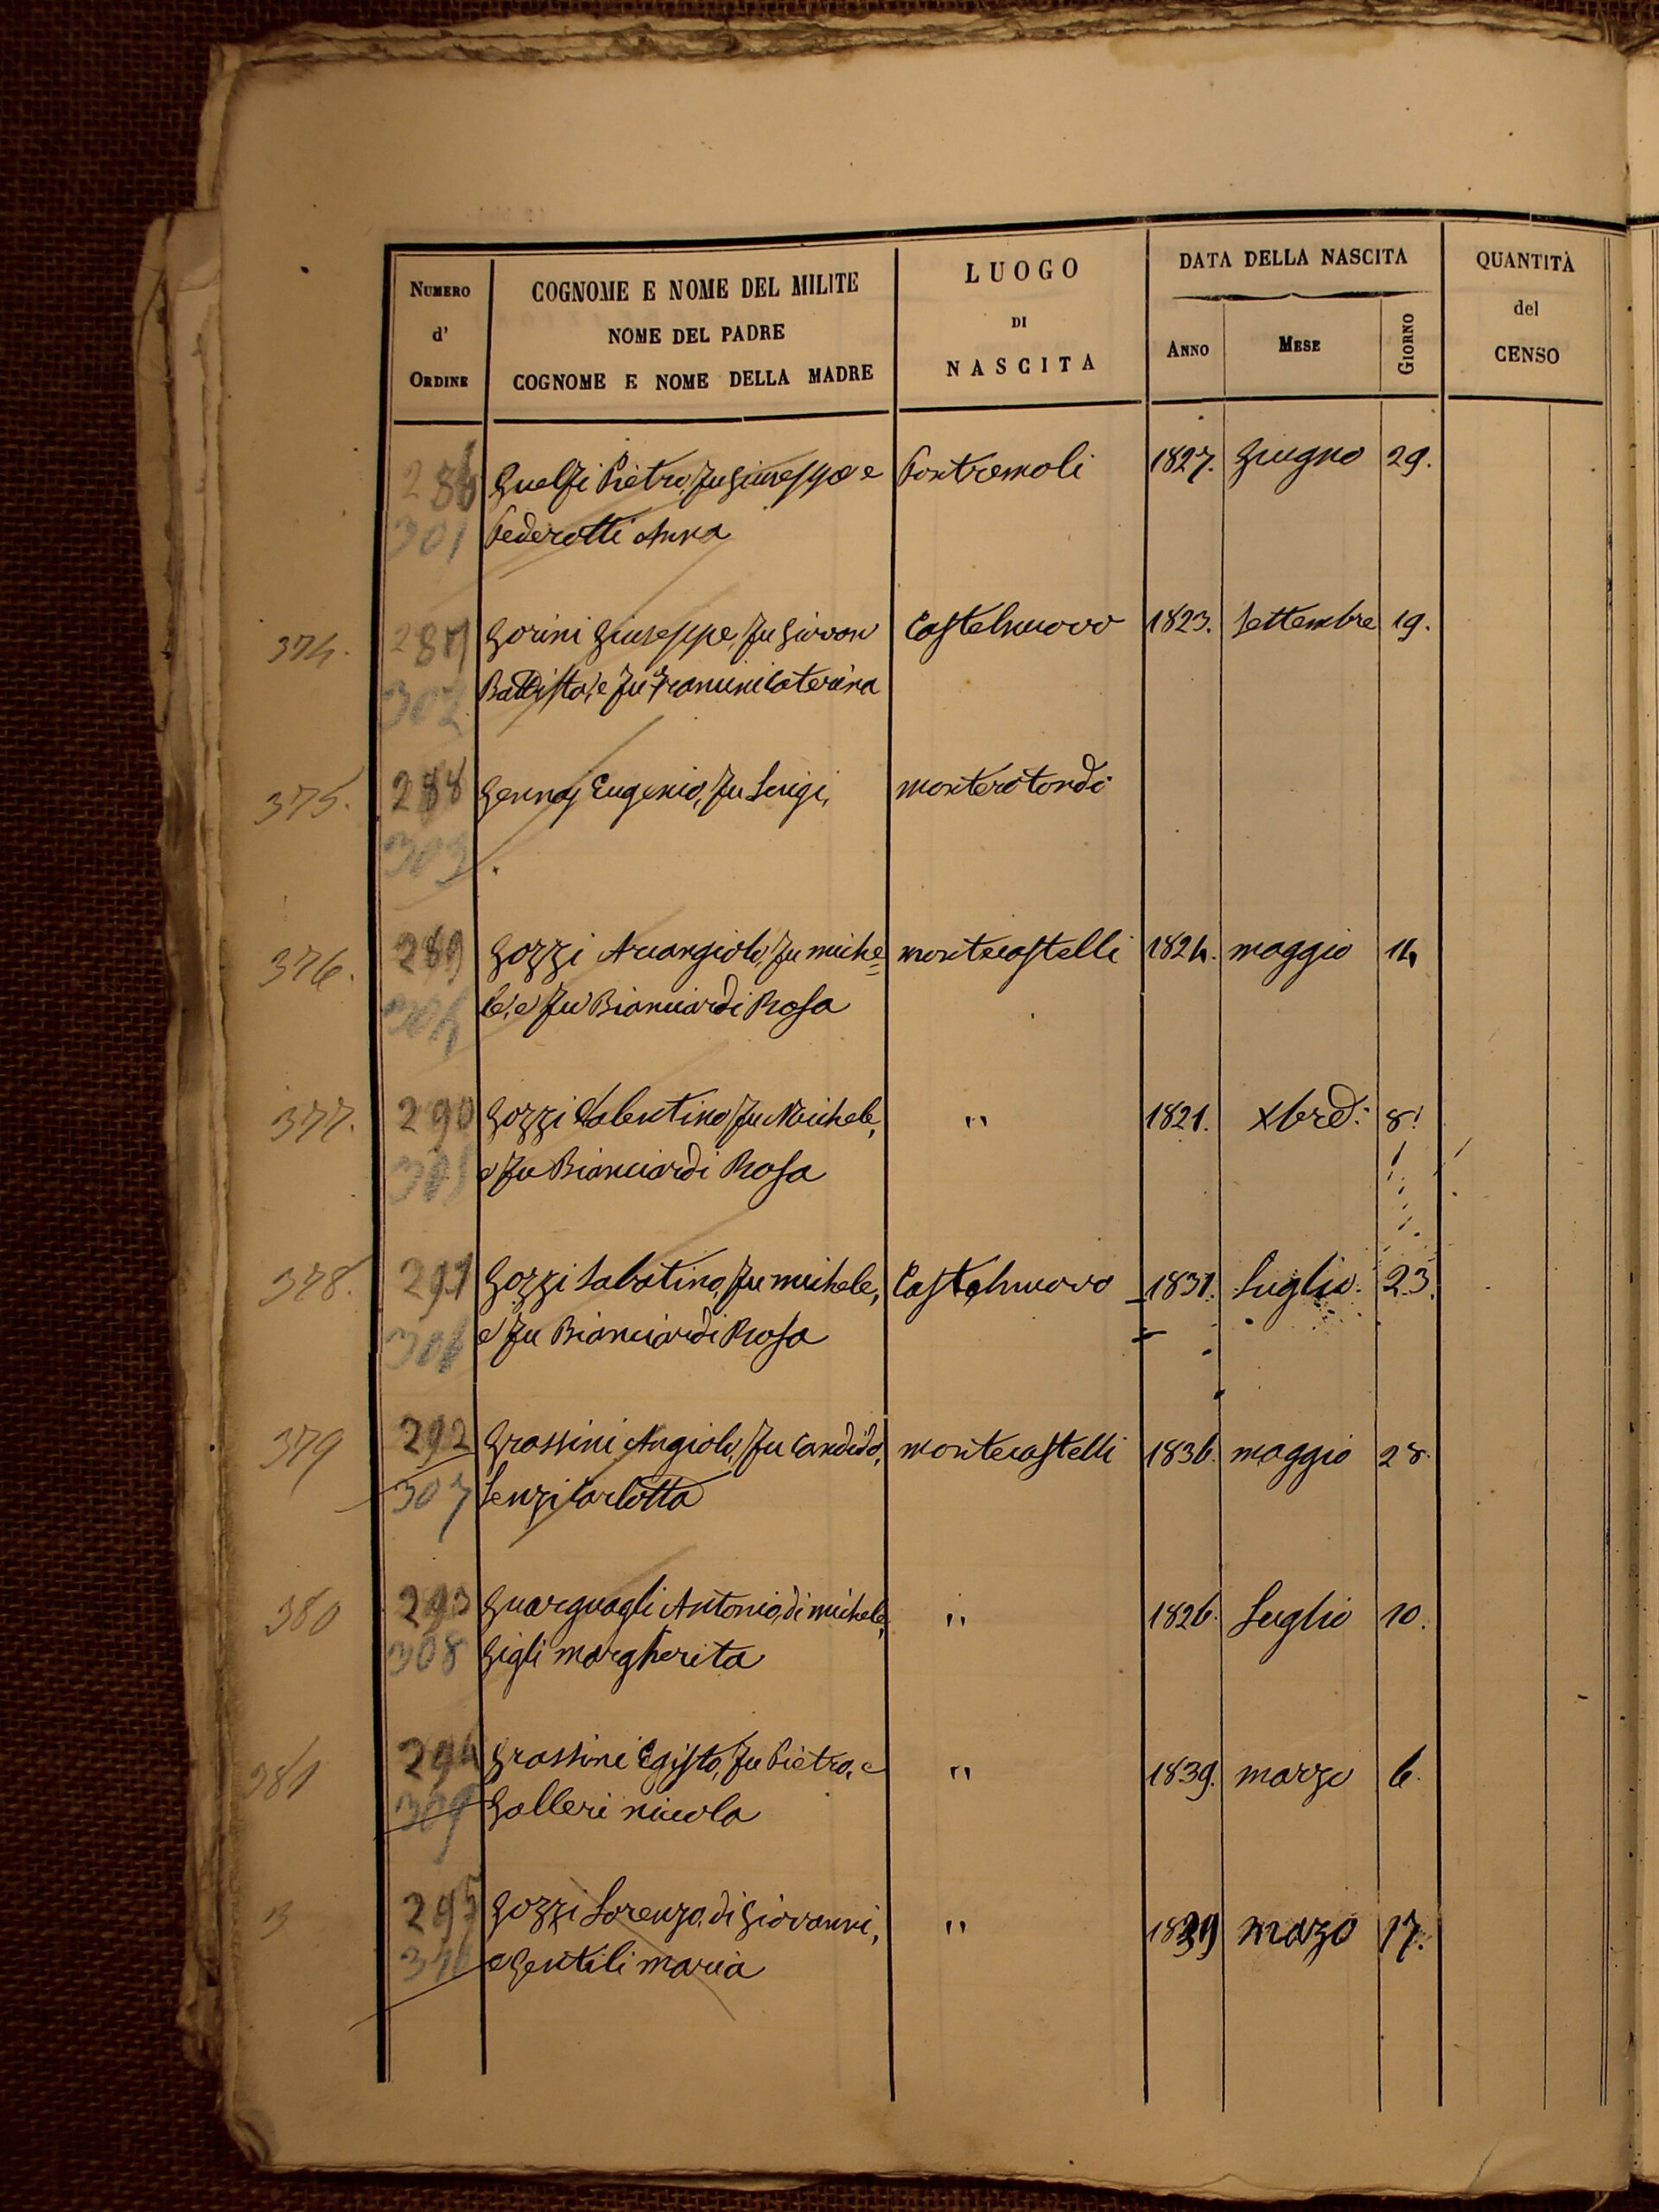 NUMERO d' ORDINE
COGNOME E NOME DEL MILITE
NOME DEL PADRE
COGNOME E NOME DELLA MADRE
LUOGO
DI
NASCITA
DATA DELLA NASCITA
ANNO MESE GIORNO
QUANTITÀ
del
CENSO
286 Guelfi Pietro, fu Giuseppe e Pontremoli 1827. Giugno 29.
301 Pederotti Anna
374. 287 Gorini Giuseppe, fu Giovan Castelnuovo 1823. Settembre 19.
302 Battista, e fu Caterina
375. 288 Gennaj Eugenio, fu Luigi, Monterotondo
303
376. 289 Gozzi Arcangiolo, fu Miche= Montecastelli 1824. Maggio 14
304 le, e fu Bianciardi Rosa
377. 290 Gozzi Valentino, fu Michele, " 1821. Xbre: 8.
305 e fu Bianciardi Rosa
378. 291 Gozzi Sabatino, fu Michele, Castelnuovo 1831. Luglio. 23.
306 e fu Bianciardi Rosa
379 292 Grassini Angiolo, fu Candido, Montecastelli 1836. Maggio 28.
307 Lenzi Carlotta
380 293 Guarguagli Antonio, di Michele, " 1826. Luglio 10.
308 Gigli Margherita
381 294 Grassini Egisto, fu Pietro, e " 1839. Marzo 6.
309 Galleri Nicola
295 Gozzi Lorenzo, di Giovanni, " Marzo 17.
310 e Gentili Maria